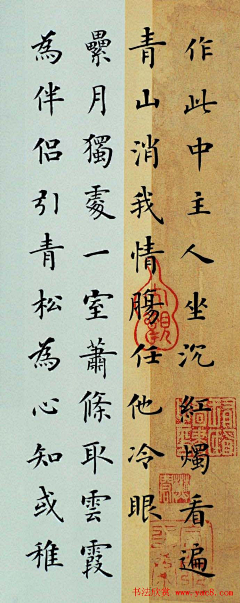 作此中主人坐沉紅燭看遍
青山消我情腸任他冷眼
纍月獨處一室蕭條取雲霞
為伴侶引青松為心知或稚
书法欣赏 www.yac8.com